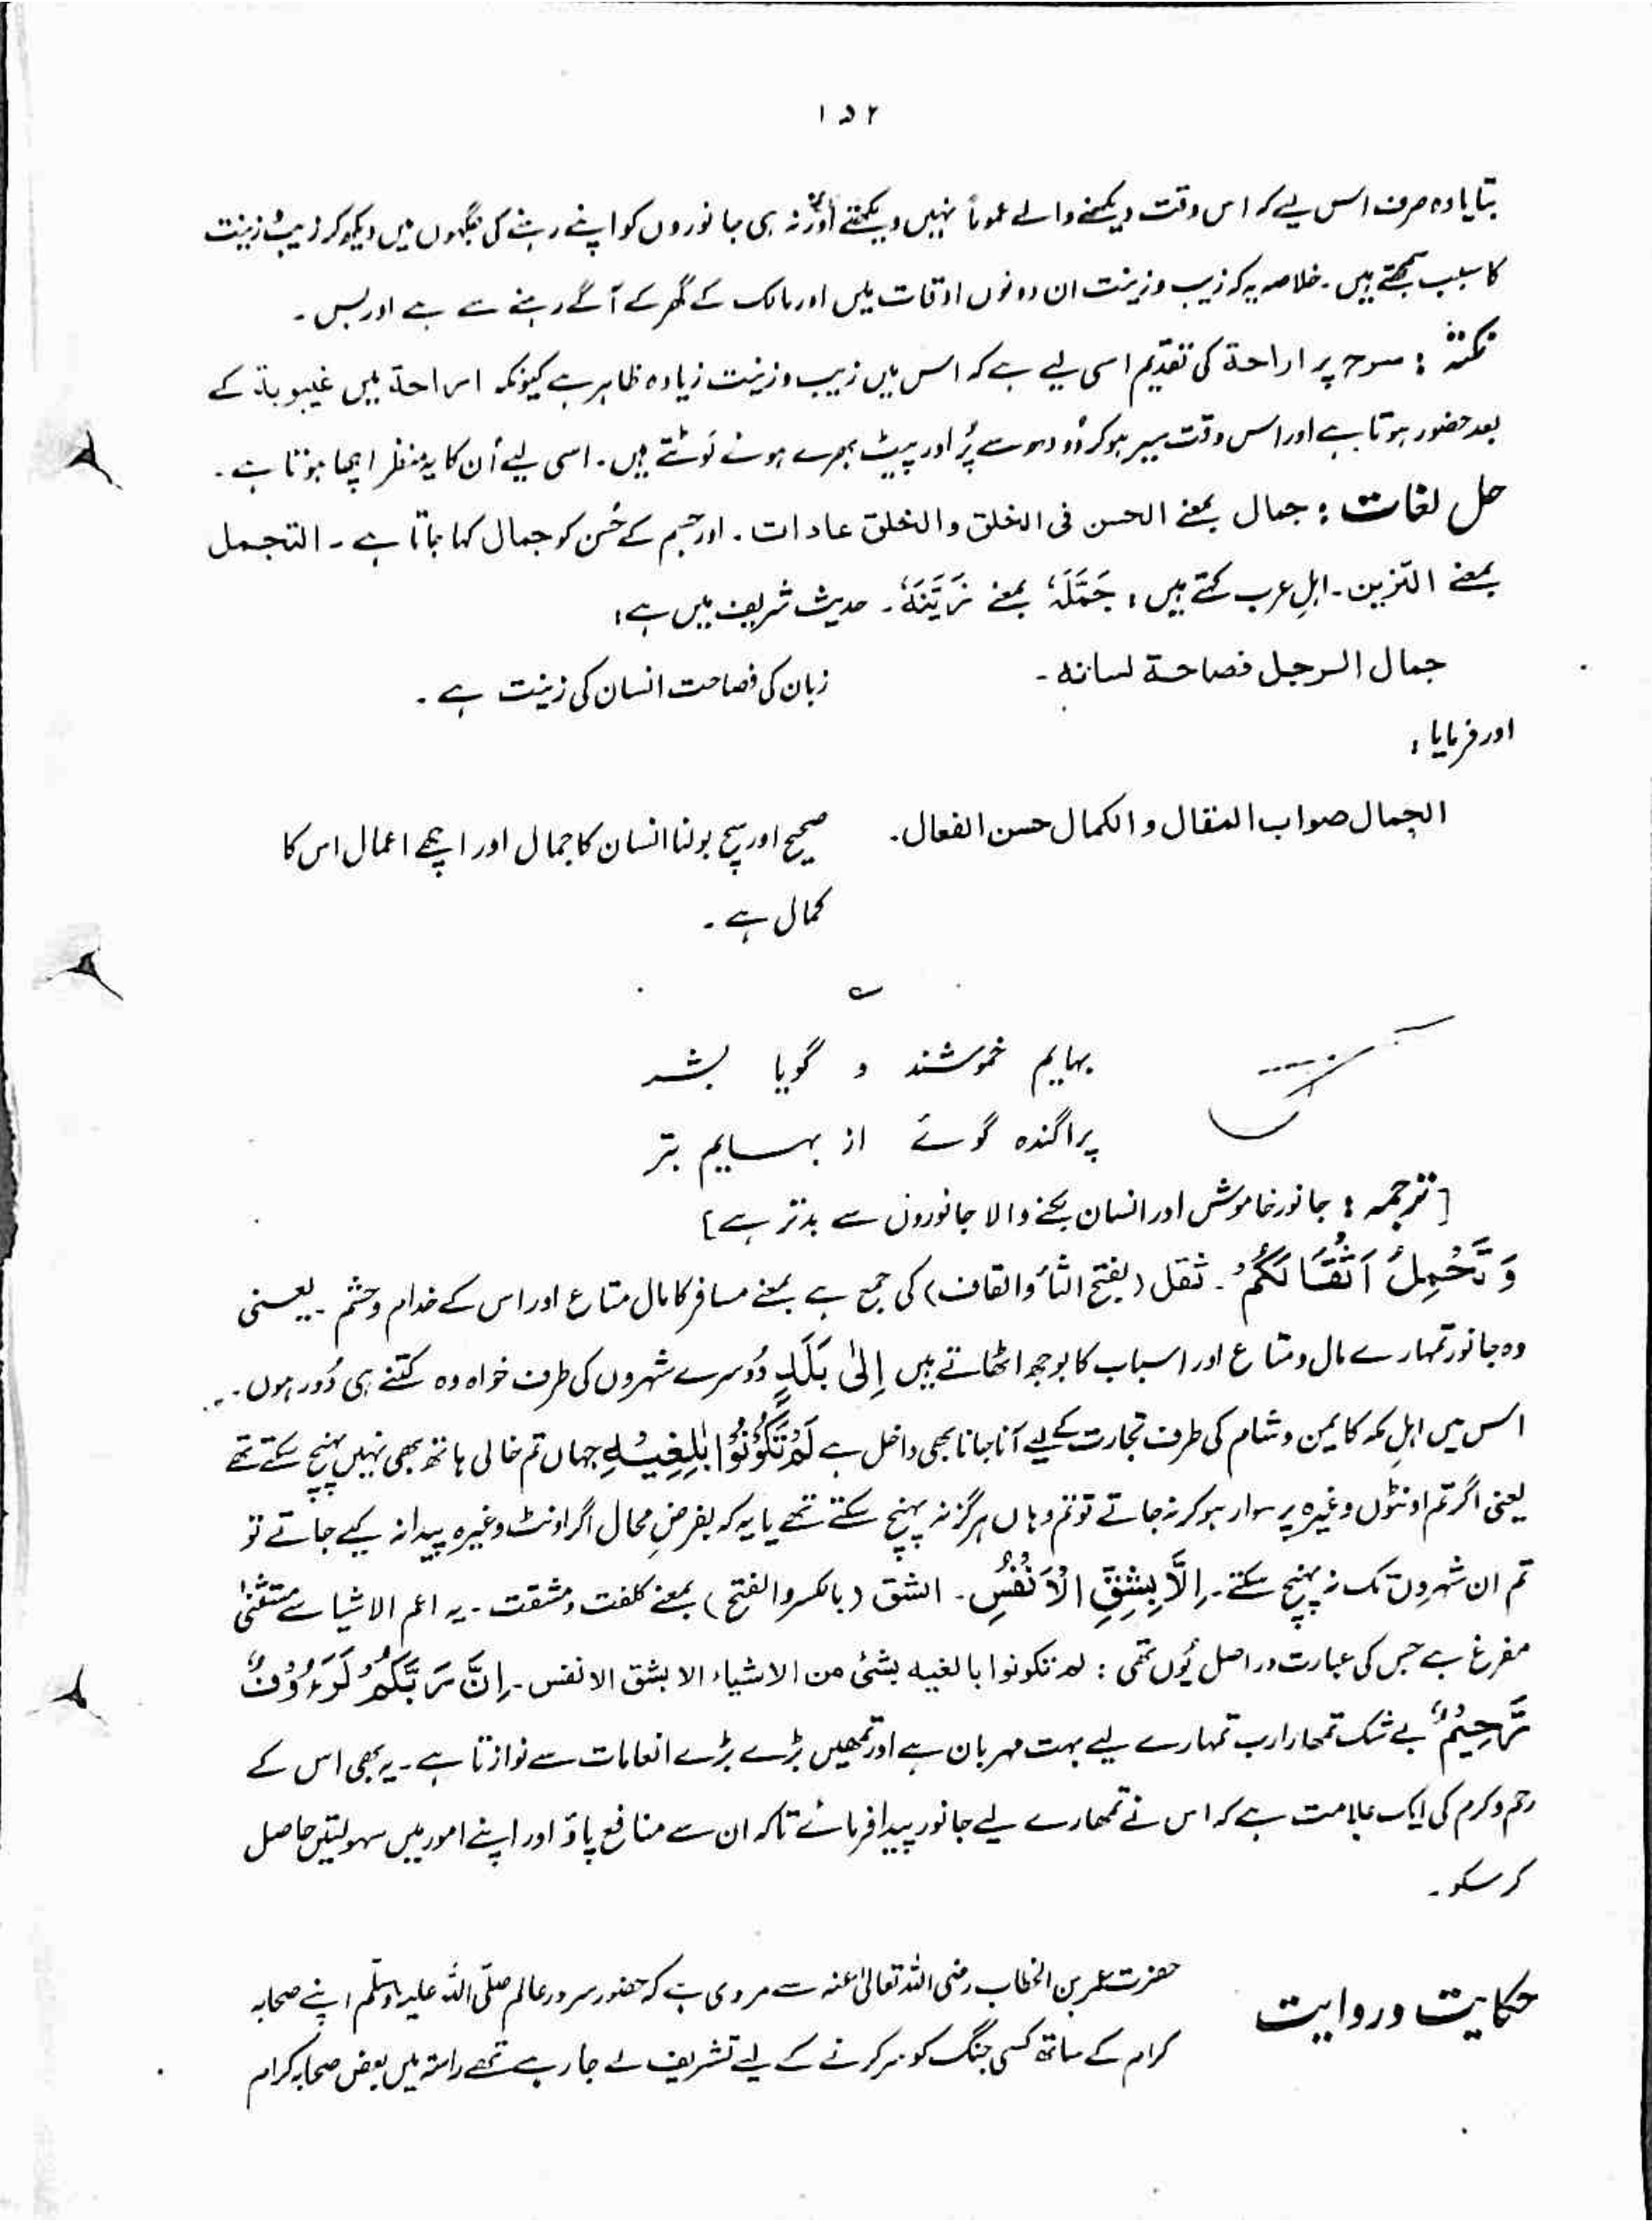 ۱۵۲
بتایا وہ صرف اس لیے کہ اس وقت دیکھنے والے عموماً نہیں دیکھتے اور نہ ہی جانوروں کو اپنے رہنے کی جگہوں میں دیکھ کر زیب و زینت
کا سبب سمجھتے ہیں ۔ خلاصہ یہ کہ زیب و زینت ان دونوں اوقات میں اور مالک کے گھر کے آگے رہنے سے ہے اور بس ۔
نکتہ : سرح پر اراحة کی تقدیم اسی لیے ہے کہ اس میں زیب و زینت زیادہ ظاہر ہے کیونکہ اراحة میں غیبوبة کے
بعد حضور ہوتا ہے اور اس وقت سیر ہو کر دُودھ سے پُر اور پیٹ بھرے ہوئے لَوٹتے ہیں ۔ اسی لیے اُن کا یہ منظر اچھا ہوتا ہے ۔
حل لغات : جمال بمعنے الحسن فی الخلق والخلق عادات ۔ اور جسم کے حُسن کو جمال کہا جاتا ہے ۔ التجمل
بمعنے التزین ۔ اہلِ عرب کہتے ہیں : جَمَّلَهٗ بمعنے زَیَّنَهٗ ۔ حدیث شریف میں ہے :
جمال الرجل فصاحة لسانه ۔ زبان کی فصاحت انسان کی زینت ہے ۔
اور فرمایا :
الجمال صواب المقال والکمال حسن الفعال ۔ صحیح اور سچ بولنا انسان کا جمال اور اچھے اعمال اس کا
کمال ہے ۔
؎
بہایم خموشند و گویا بشر
پراگندہ گوئے از بہایم بتر
[ ترجمہ : جانور خاموش اور انسان بکنے والا جانوروں سے بدتر ہے ]
وَ تَحْمِلُ اَثْقَالَكُمْ ۔ ثقل (بفتح الثأ والقاف) کی جمع ہے بمعنے مسافر کا مال متاع اور اس کے خدام و حشم ۔ یعنی
وہ جانور تمہارے مال و متاع اور اسباب کا بوجھ اٹھاتے ہیں اِلٰى بَلَدٍ دُوسرے شہروں کی طرف خواہ وہ کتنے ہی دُور ہوں ۔
اس میں اہلِ مکہ کا یمن و شام کی طرف تجارت کے لیے آنا جانا بھی داخل ہے لَمْ تَكُوْنُوْا بٰلِغِیْهِ جہاں تم خالی ہاتھ بھی نہیں پہنچ سکتے تھے
یعنی اگر تم اونٹوں وغیرہ پر سوار ہو کر نہ جاتے تو تم وہاں ہرگز نہ پہنچ سکتے تھے یا یہ کہ بفرضِ محال اگر اونٹ وغیرہ پیدا نہ کیے جاتے تو
تم ان شہروں تک نہ پہنچ سکتے ۔ اِلَّا بِشِقِّ الْاَنْفُسِ ۔ الشق (بالکسر والفتح) بمعنے کلفت و مشقت ۔ یہ اعم الاشیا سے مستثنیٰ
مفرغ ہے جس کی عبارت در اصل یُوں تھی : لم تکونوا بالغیه بشیٔ من الاشیاء الا بشق الانفس ۔ اِنَّ رَبَّكُمْ لَرَءُوْفٌ
رَّحِیْمٌ بے شک تمھارا رب تمہارے لیے بہت مہربان ہے اور تمھیں بڑے بڑے انعامات سے نوازتا ہے ۔ یہ بھی اس کے
رحم و کرم کی ایک علامت ہے کہ اس نے تمھارے لیے جانور پیدا فرمائے تاکہ ان سے منافع پاؤ اور اپنے امور میں سہولتیں حاصل
کر سکو ۔
حکایت و روایت حضرت عمر بن الخطاب رضی اللہ تعالیٰ عنہ سے مروی ہے کہ حضور سرور عالم صلّی اللہ علیہ وسلّم اپنے صحابہ
کرام کے ساتھ کسی جنگ کو سر کرنے کے لیے تشریف لے جا رہے تھے راستہ میں بعض صحابہ کرام